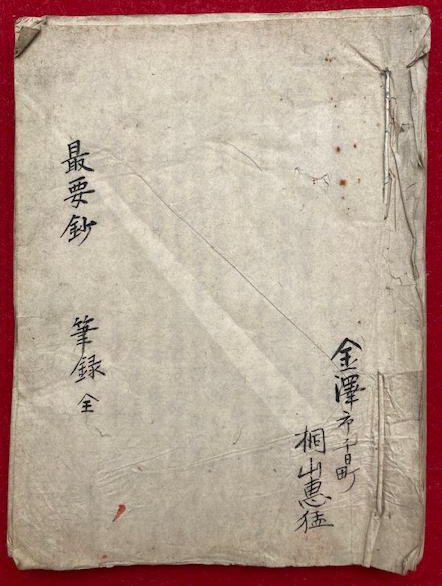 金澤市千日町
桐山惠猛
最要鈔 筆録 全